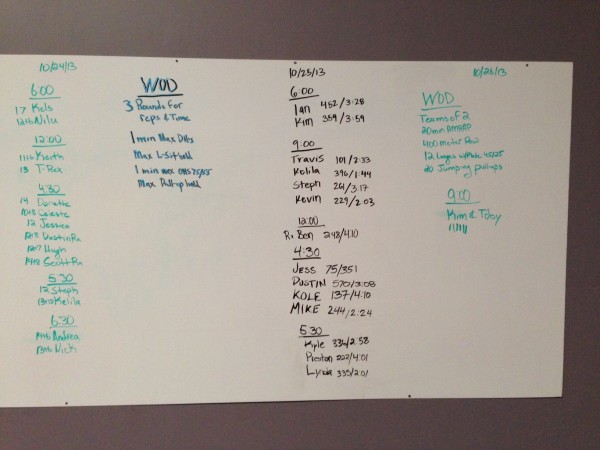 10/24/13
6:00
17 Kels
Nilu
12:00
Keith
13 T-Rex
4:30
14
Celeste
12 Jessica
Dustin Rx
Hugh
Scott Rx
5:30
12 Steph
Kelila
6:30
Andrea
Nick
WOD
3 Rounds for
reps & Time
1 min Max DUs
Max L-sit hold
1 min max OHS 75/55
Max Pullup hold
10/25/13
6:00
Ian 452/3:28
Kim 359/3:59
9:00
Travis 101/2:33
Kolila 396/1:44
Steph 261/3:17
Kevin 229/2:03
12:00
Rx Ben 248/4:10
4:30
JESS 75/351
DUSTIN 570/3:08
KOLE 137/4:10
MIKE 244/2:24
5:30
Kyle 336/2:58
Preston 222/4:01
Lydia 335/2:01
10/26/13
WOD
Teams of 2
20 min AMRAP
400 meter Row
12 Lunges w/ Plate 45/25
20 Jumping pullups
9:00
Kim & Toby